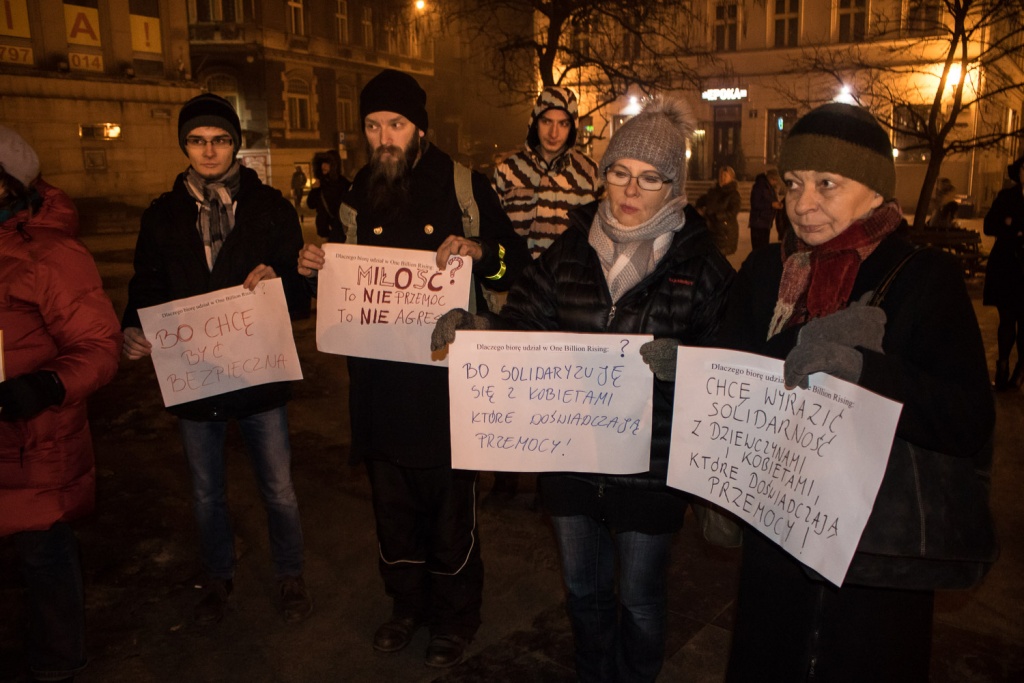 IA!
797
014
"EPOKA"
Dlaczego biorę udział w One Billion Rising:
BO CHCĘ
BYĆ
BEZPIECZNA
Dlaczego biorę udział w One Billion Rising:
MIŁOŚĆ?
TO NIE PRZEMOC
TO NIE AGRES
Dlaczego biorę udział w One Billion Rising: ?
BO SOLIDARYZUJĘ
SIĘ Z KOBIETAMI
KTÓRE DOŚWIADCZAJĄ
PRZEMOCY!
Dlaczego biorę udział w One Billion Rising:
CHCĘ WYRAZIĆ
SOLIDARNOŚĆ
Z DZIEWCZYNAMI
I KOBIETAMI,
KTÓRE DOŚWIADCZAJĄ
PRZEMOCY!